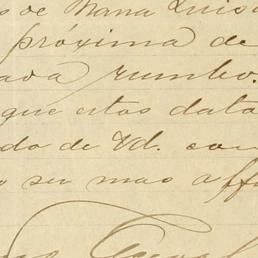 de Maria Luisa
próxima de
rumbo.
que estos data
do de Vd. con
ser mas aff